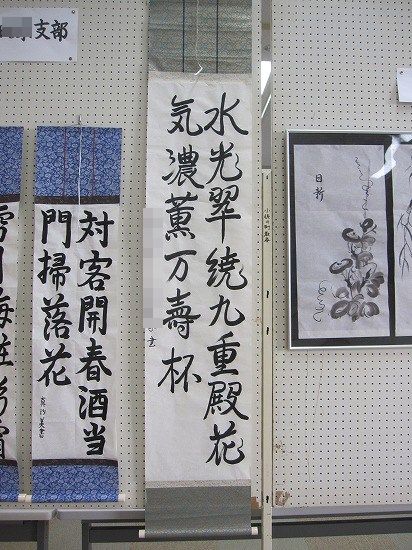 支部
水光翠繞九重殿花
気濃薫万壽杯
対客開春酒当
門掃落花